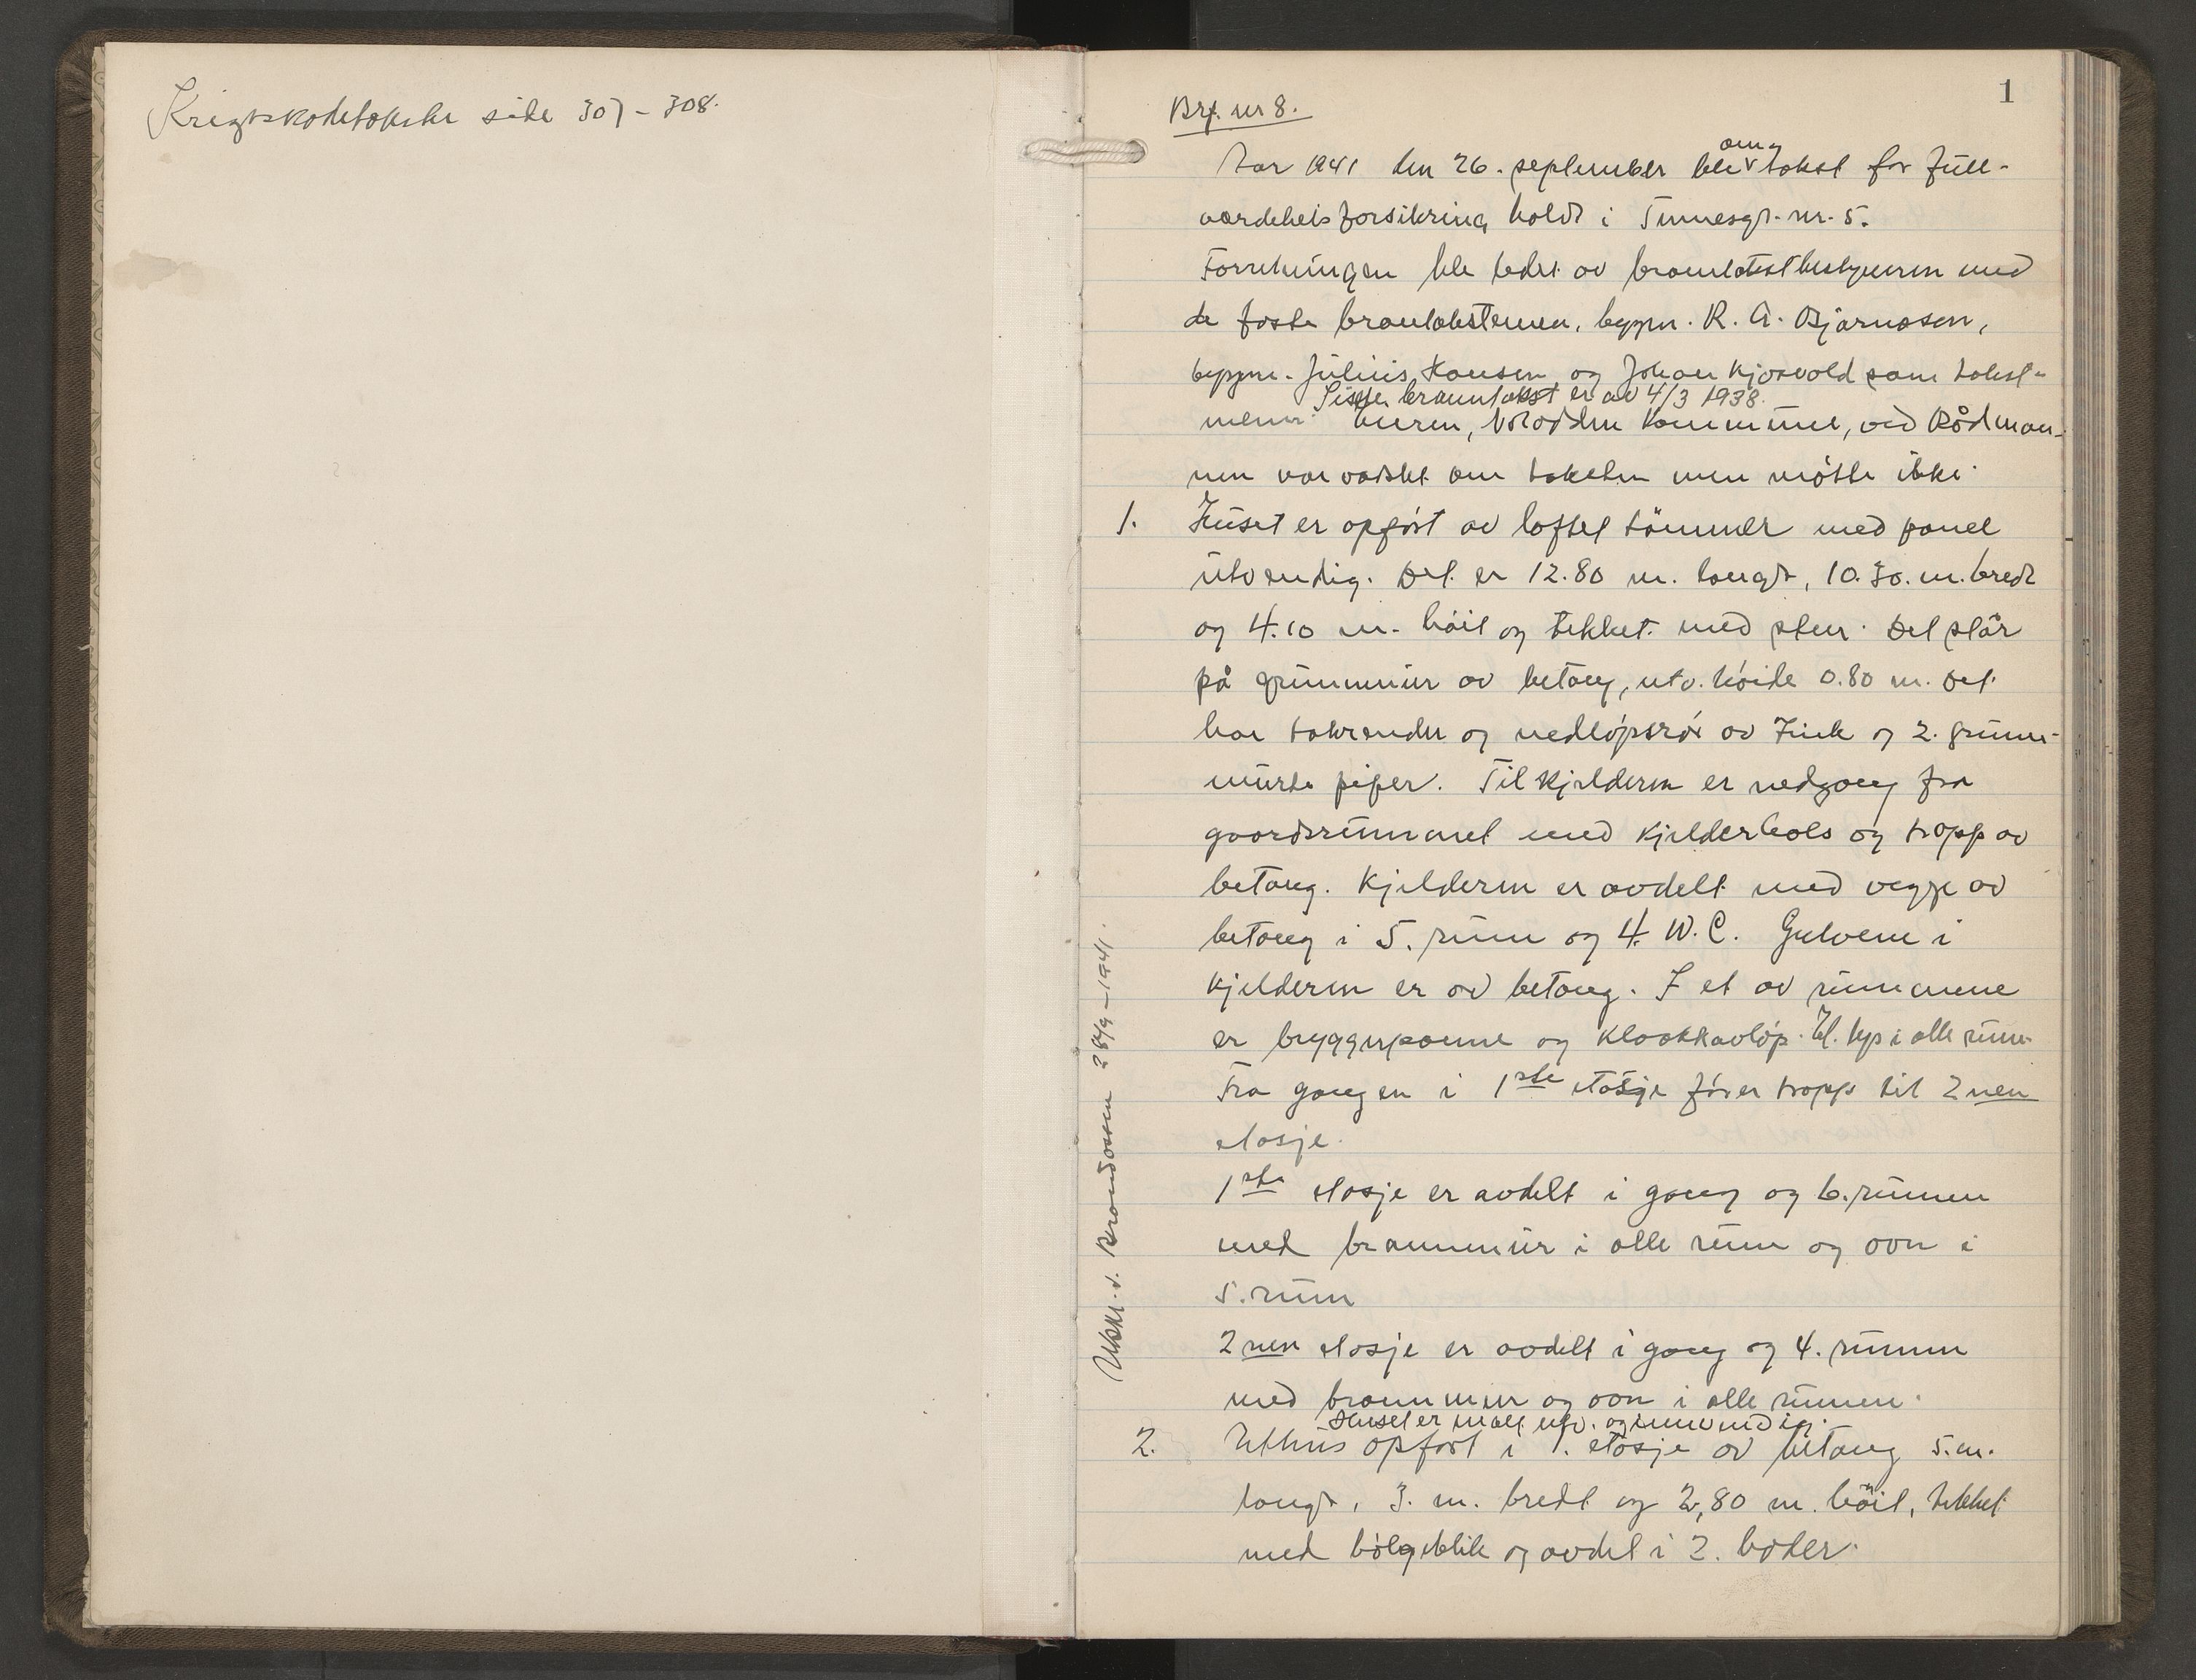 Krigsskadetakster side 307-308.
1
Brf. nr 8.
År 1941 den 26. september ble omv takst for full-
verdeheisforsikring holdt i Tinnesgt. nr. 5.
Forretningen ble ledet av branntakstbestyreren med
de faste branntakstmenn, byggm. R. A. Bjarnason,
byggm. Julius Hansen og Johan Kjosvold som takst-
Siste branntakst er av 4/3 1938.
menn. Eieren, Notodden kommune, ved Rådman-
nen var varslet om taksten men møtte ikke.
1. Huset er opført av laftet tømmer med panel
utvendig. Det er 12.80 m. langt, 10.30. m. bredt
og 4.10 m. høit og tekket med sten. Det står
på grunnmur av betong, utv. høide 0.80 m. Det
har takrender og nedløpsrør av Zink og 2. grunn-
murte piper. Til kjelderen er nedgang fra
gaardsrummet med kjelderhals og trapp av
betong. Kjelderen er avdelt med vegge av
betong i 5. rum og 4. W.C. Gulvene i
kjelderen er av betong. I et av rummene
er bryggepanne og kloakkavløp. El. lys i alle rum.
Fra gangen i 1ste etasje fører trapp til 2nen
etasje.
1ste etasje er avdelt i gang og 6. rummen
med brannmur i alle rum og ovn i
5. rum
2nen etasje er avdelt i gang og 4. rummen
med brannmur og ovn i alle rummen.
Huset er malt utv. og innvendig.
2. Uthus opført i 1. etasje av betong 5. m.
langt, 3. m. bredt og 2,80 m. høit, tekket
med bølgeblik og avdel i 2. boder.
Utskr. s. Brandkassen 28/9-1941.